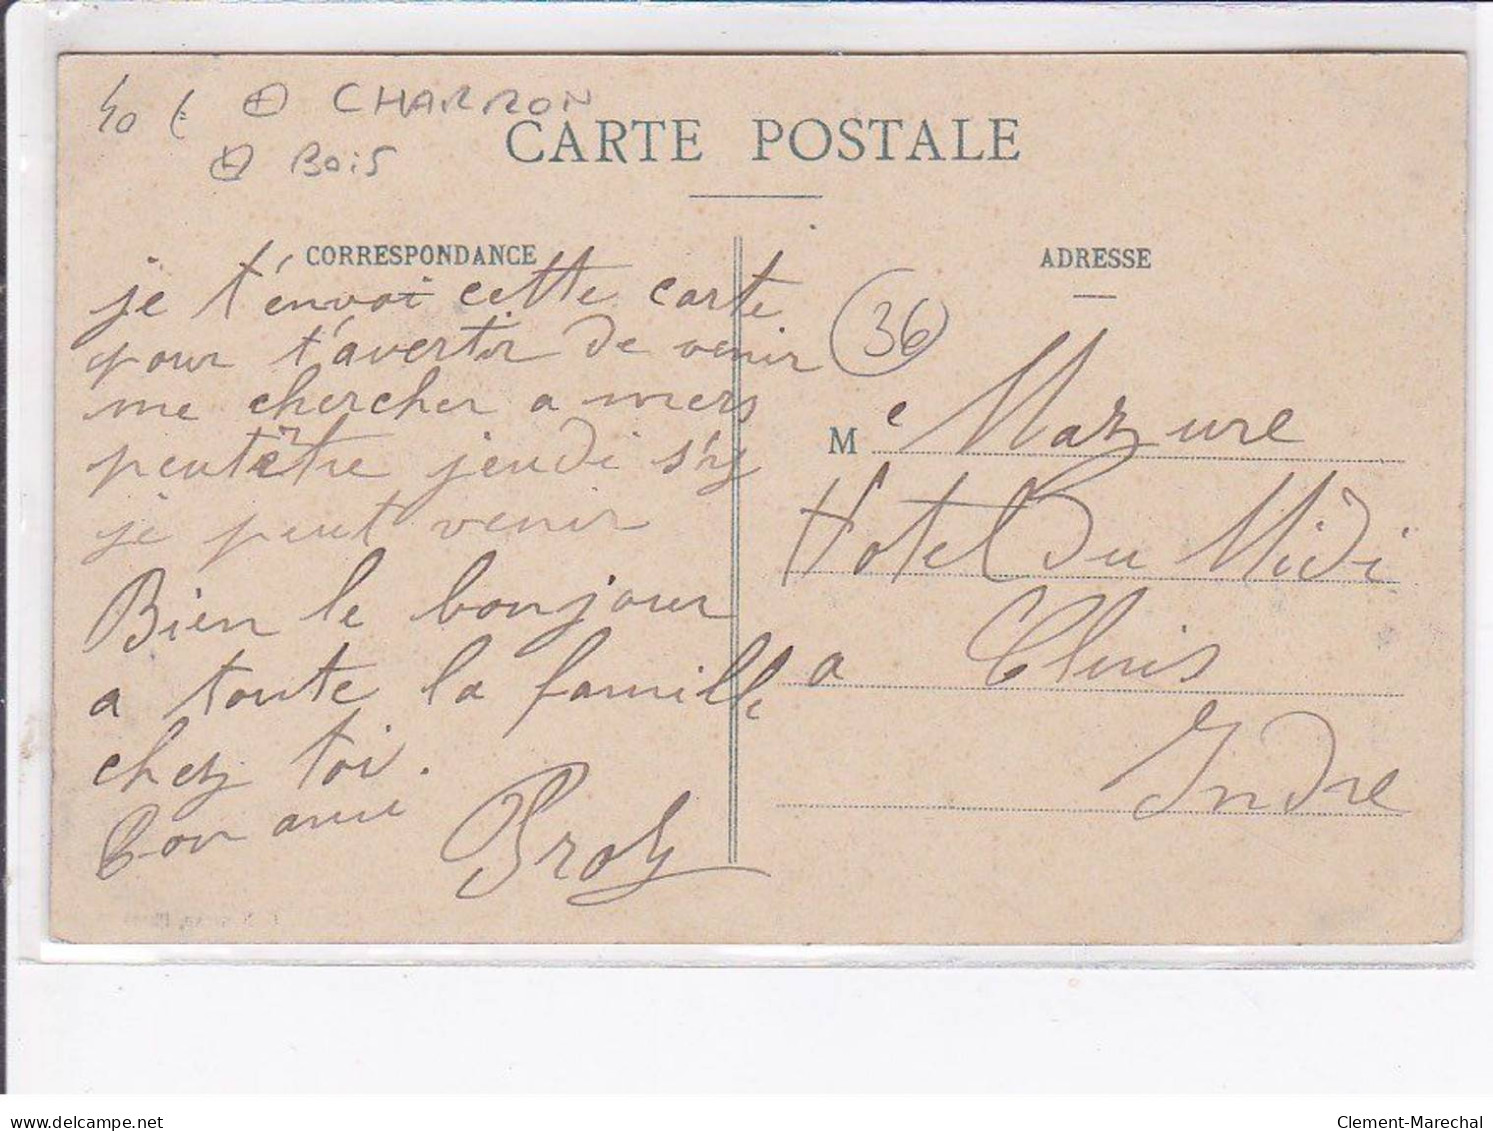 40 €
CHARRON
Bois
CARTE POSTALE
CORRESPONDANCE
je t'envoi cette carte
pour t'avertir de venir
me chercher a mers
peutêtre jeudi s'ry
je peut venir
Bien le bonjour
a toute la famille
chez toi.
ton ami
Broly
ADRESSE
36
Me Mazure
Hotel Du Midi
a Cluis
Indre
delcampe.net
Clement-Marechal